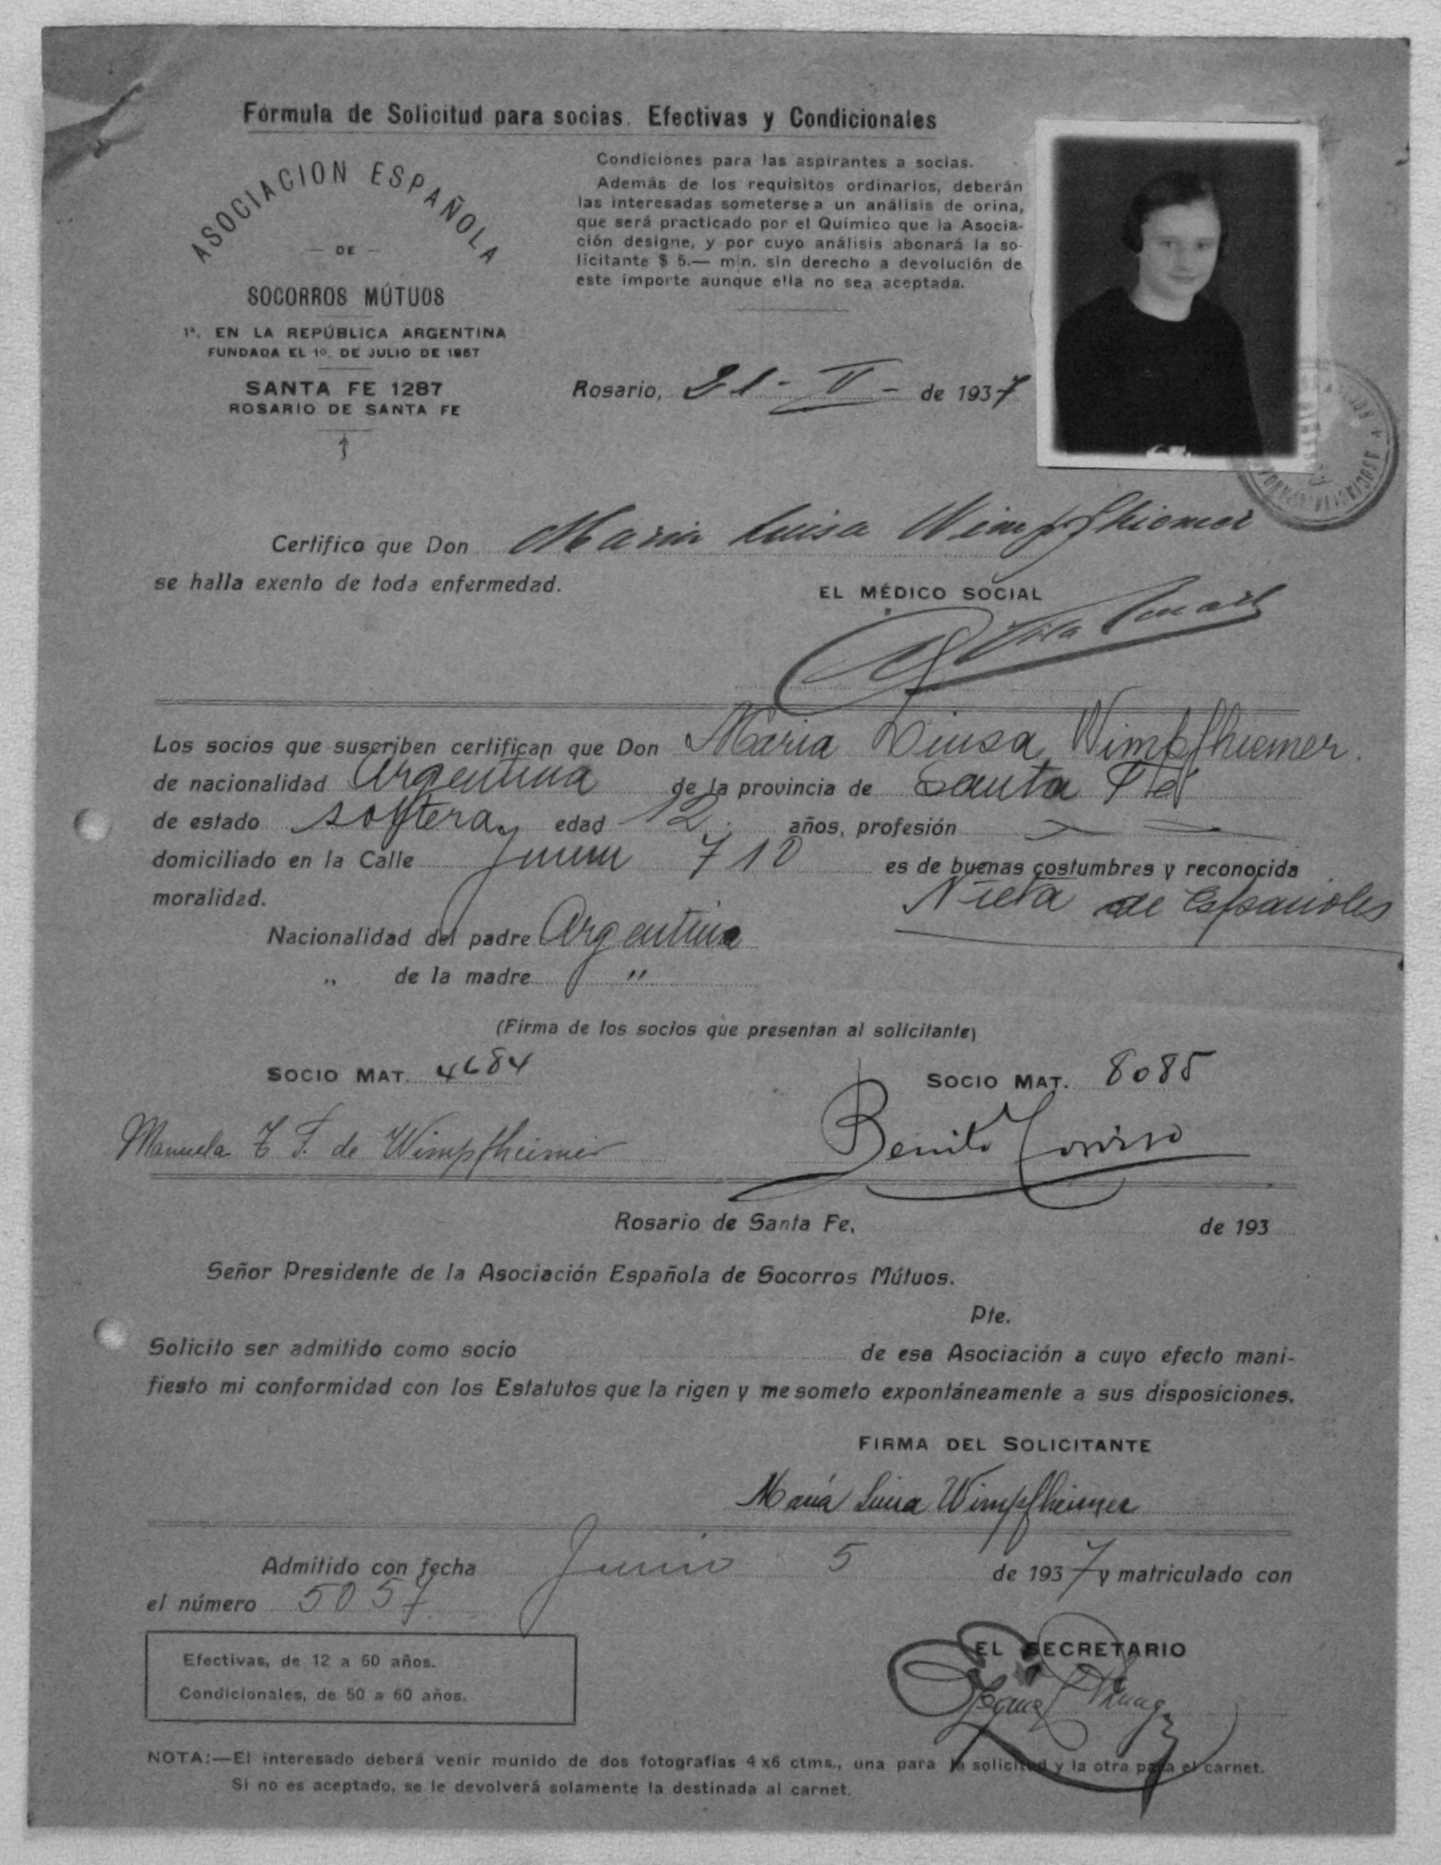 Fórmula de Solicitud para socias. Efectivas y Condicionales
ASOCIACION ESPAÑOLA
— DE —
SOCORROS MÚTUOS
1ª. EN LA REPÚBLICA ARGENTINA
FUNDADA EL 1º. DE JULIO DE 1857
SANTA FE 1287
ROSARIO DE SANTA FE
Condiciones para las aspirantes a socias.
Además de los requisitos ordinarios, deberán
las interesadas someterse a un análisis de orina,
que será practicado por el Químico que la Asocia-
ción designe, y por cuyo análisis abonará la so-
licitante $ 5.— m/n. sin derecho a devolución de
este importe aunque ella no sea aceptada.
Rosario, 21 - V - de 1937
Certifico que Don Maria Luisa Wimpfhiemer
se halla exento de toda enfermedad.
EL MÉDICO SOCIAL
Los socios que suscriben certifican que Don Maria Luisa Wimpfhiemer.
de nacionalidad Argentina de la provincia de Santa Fe
de estado soltera, edad 12 años, profesión
domiciliado en la Calle Junin 710 es de buenas costumbres y reconocida
moralidad. Nieta de Españoles
Nacionalidad del padre Argentina
„ de la madre „
(Firma de los socios que presentan al solicitante)
SOCIO MAT. 4684 SOCIO MAT. 8085
Manuela T. F. de Wimpfheimer Benito
Rosario de Santa Fe, de 193
Señor Presidente de la Asociación Española de Socorros Mútuos.
Pte.
Solicito ser admitido como socio de esa Asociación a cuyo efecto mani-
fiesto mi conformidad con los Estatutos que la rigen y me someto expontáneamente a sus disposiciones.
FIRMA DEL SOLICITANTE
María Luisa Wimpfheimer
Admitido con fecha Junio 5 de 1937 y matriculado con
el número 5057
EL SECRETARIO
Efectivas, de 12 a 50 años.
Condicionales, de 50 a 60 años.
NOTA:—El interesado deberá venir munido de dos fotografías 4 x6 ctms., una para la solicitud y la otra para el carnet.
Si no es aceptado, se le devolverá solamente la destinada al carnet.